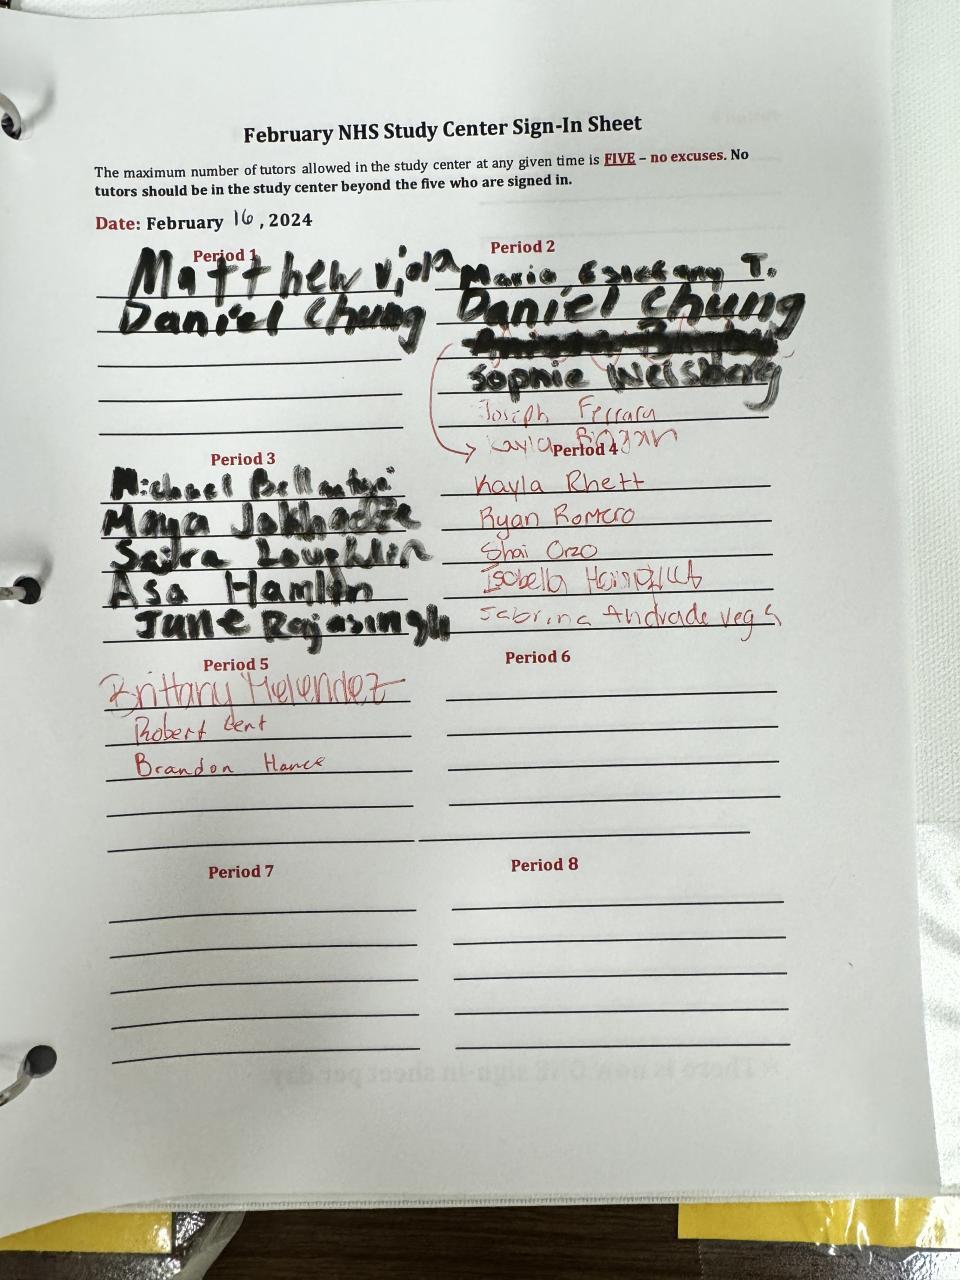 February NHS Study Center Sign-In Sheet
The maximum number of tutors allowed in the study center at any given time is FIVE – no excuses. No
tutors should be in the study center beyond the five who are signed in.
Date: February 16, 2024
Period 1
Matthew Viola
Daniel Chung
Period 2
Maria Estefany T.
Daniel Chung
Sophie Weisberg
Joseph Ferrara
Kayla
Period 3
Michael
Maya
Saira Loughlin
Asa Hamlin
June Rajasingh
Period 4
Kayla Rhett
Ryan Romero
Shai Orzo
Isabella
Sabrina Andrade Vega
Period 5
Brittany Melendez
Robert Kent
Brandon Hance
Period 6
Period 7
Period 8